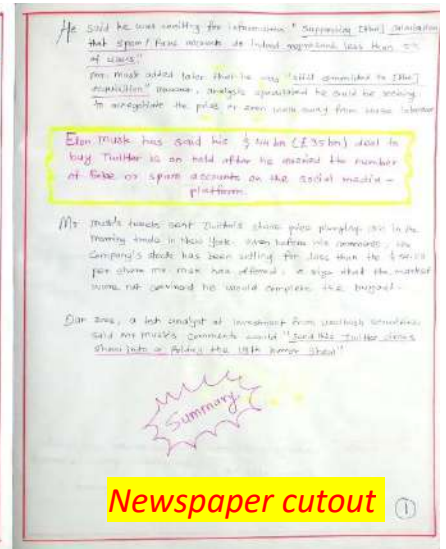 He said he was waiting for information "Supporting [the] calculation
that spam/fake accounts do indeed represent less than 5%
of users"
Mr. Musk added later that he was "still committed to [the]
acquisition" However, analysts speculated he could be seeking
to renegotiate the price or even walk away from the takeover
Elon Musk has said his $44bn (£35bn) deal to
buy Twitter is on hold after he queried the number
of fake or spam accounts on the social media -
platform.
Mr Musk's tweets sent Twitter's share price plunging in the
morning trade in New York. Even before his comments, the
Company's stock has been selling for less than the $54.20
per share Mr Musk has offered, a sign that the market
were not convinced he would complete the buyout.
Dan Ives, a tech analyst at investment firm Wedbush Securities
said Mr Musk's comments would "Send this Twitter circus
show into a Friday the 13th horror show"
Summary
Newspaper cutout
1